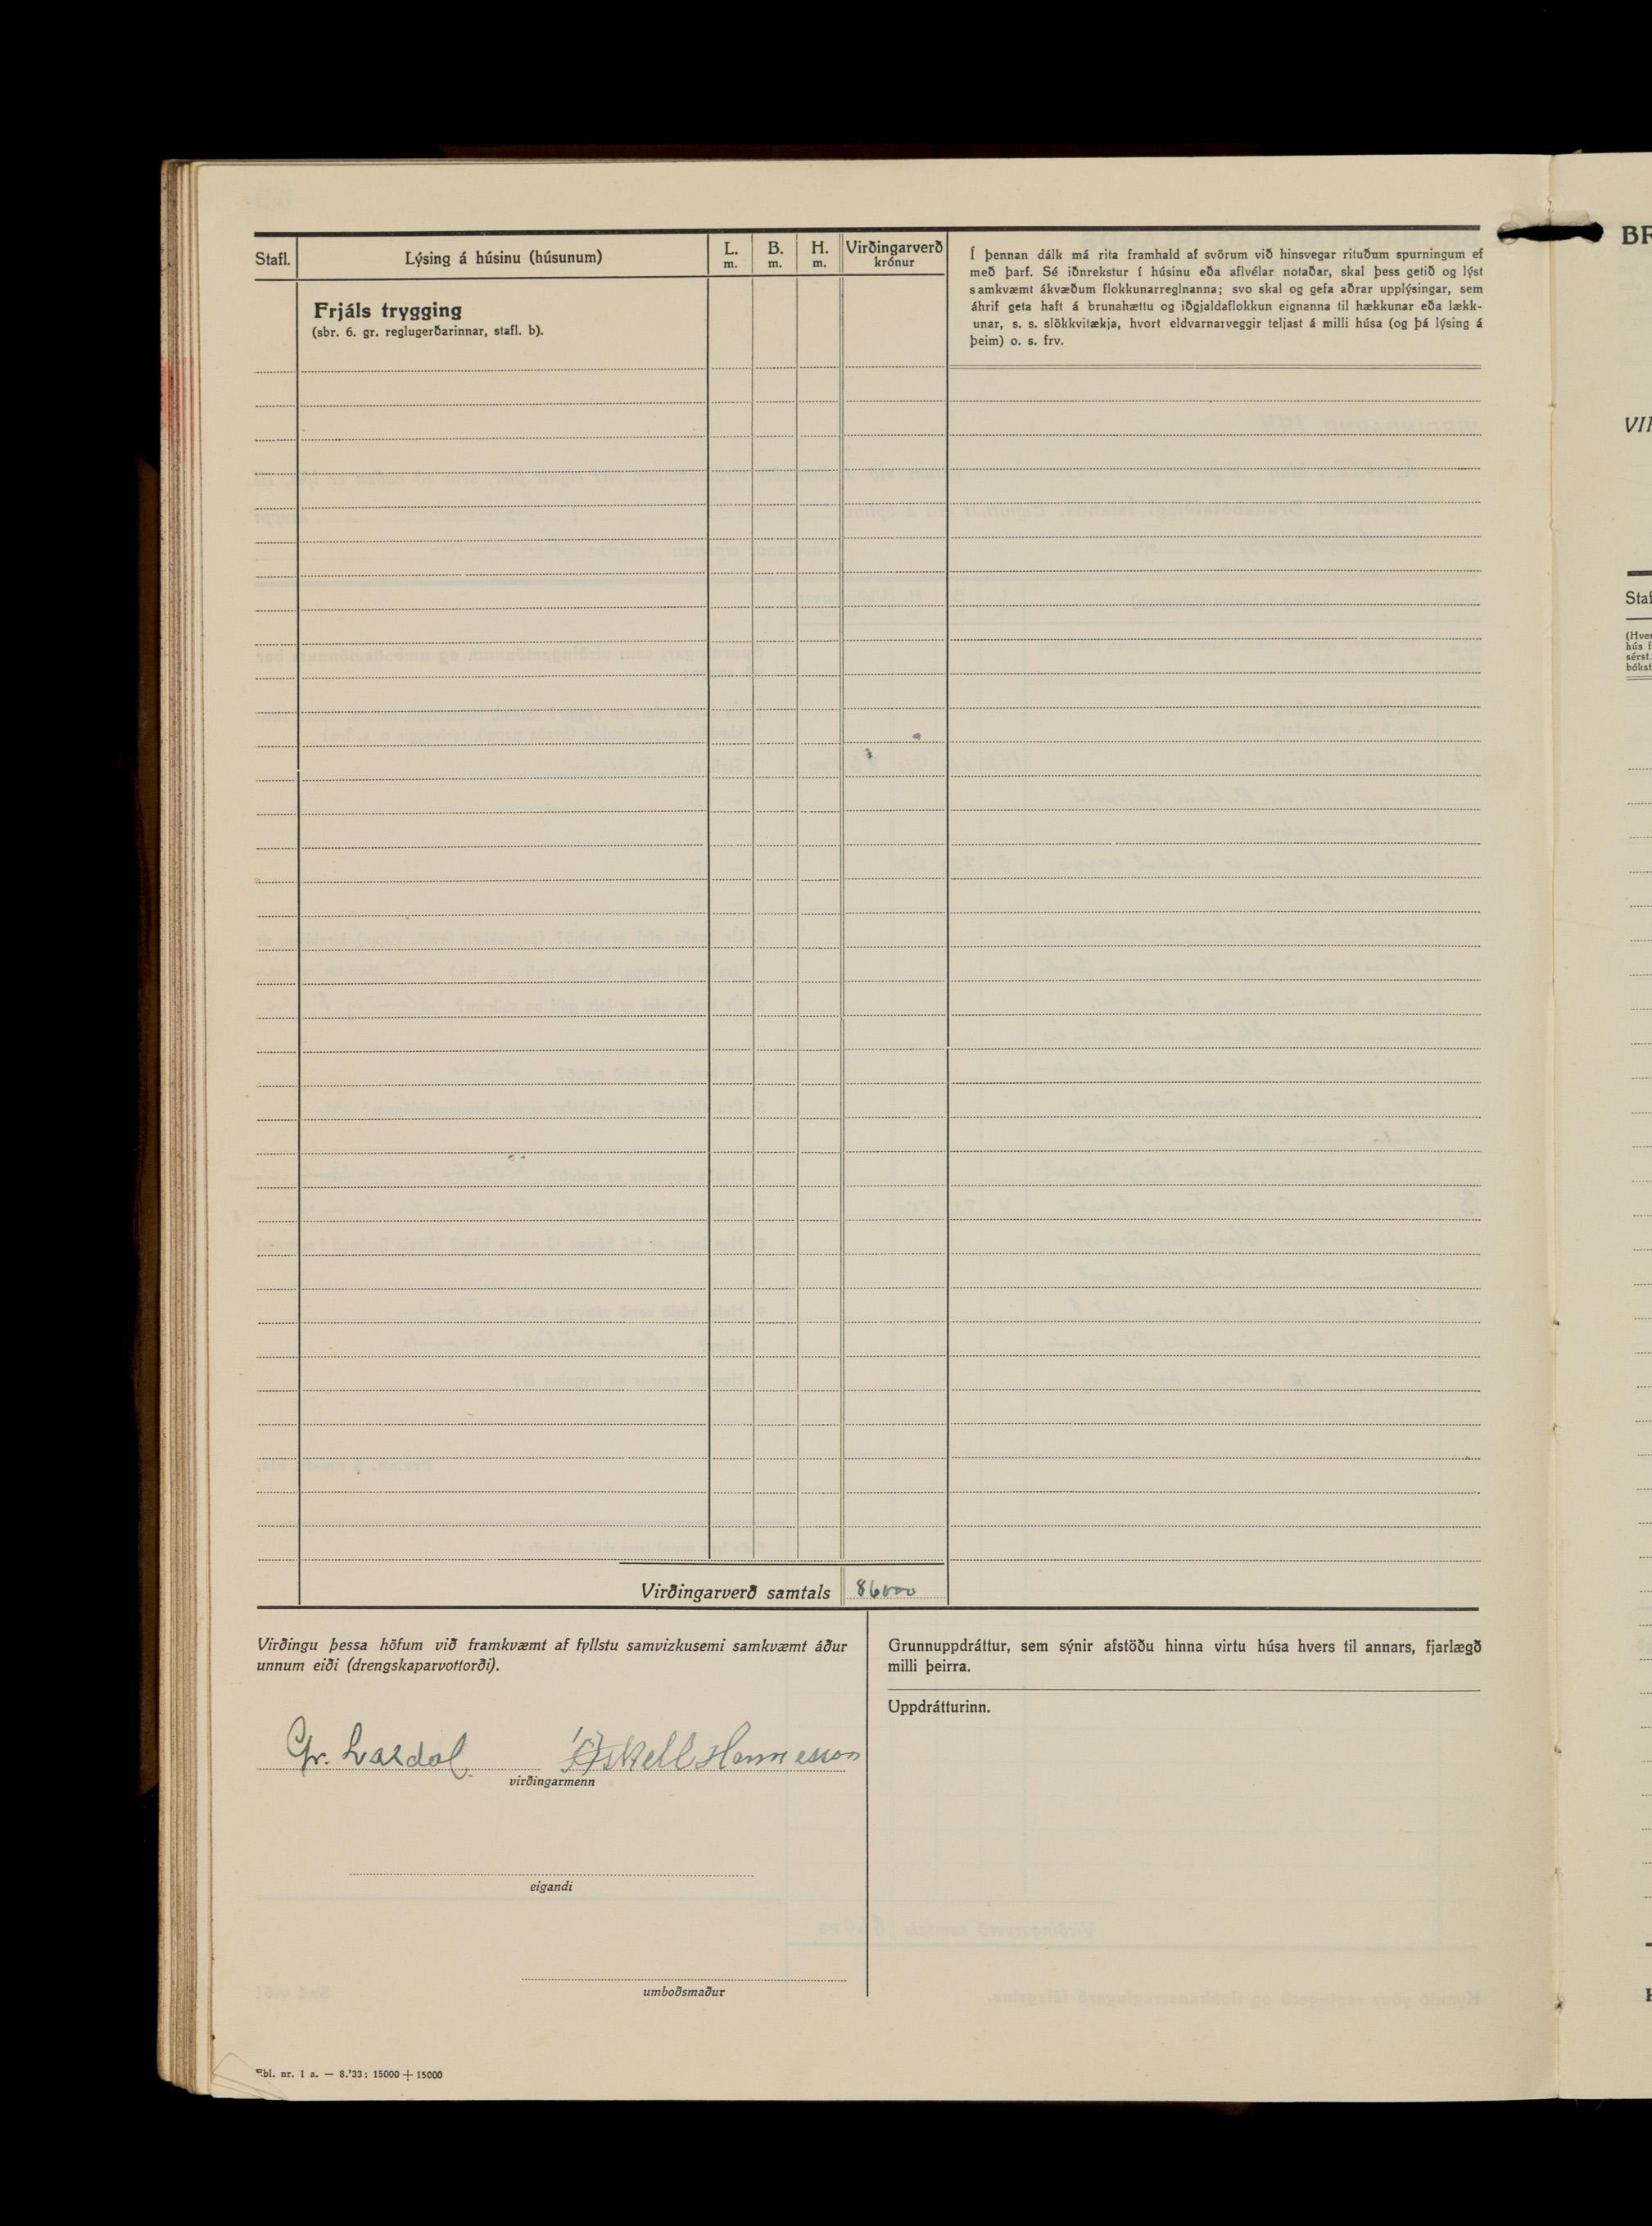 Stafl.
Lýsing á húsinu (húsunum)
L. m.
B. m.
H. m.
Virðingarverð krónur
Frjáls trygging
(sbr. 6. gr. reglugerðarinnar, stafl. b).
Í þennan dálk má rita framhald af svörum við hinsvegar rituðum spurningum ef
með þarf. Sé iðnrekstur í húsinu eða aflvélar notaðar, skal þess getið og lýst
samkvæmt ákvæðum flokkunarreglnanna; svo skal og gefa aðrar upplýsingar, sem
áhrif geta haft á brunahættu og iðgjaldaflokkun eignanna til hækkunar eða lækk-
unar, s. s. slökkvitækja, hvort eldvarnarveggir teljast á milli húsa (og þá lýsing á
þeim) o. s. frv.
Virðingarverð samtals 86000
Virðingu þessa höfum við framkvæmt af fyllstu samvizkusemi samkvæmt áður
unnum eiði (drengskaparvottorði).
Gr. Laxdal Áskell Hannesson
virðingarmenn
eigandi
umboðsmaður
Grunnuppdráttur, sem sýnir afstöðu hinna virtu húsa hvers til annars, fjarlægð
milli þeirra.
Uppdrátturinn.
Ebl. nr. 1 a. — 8.'33: 15000 + 15000
BR
VIR
Staf
(Hver
hús f
sérst.
bókst